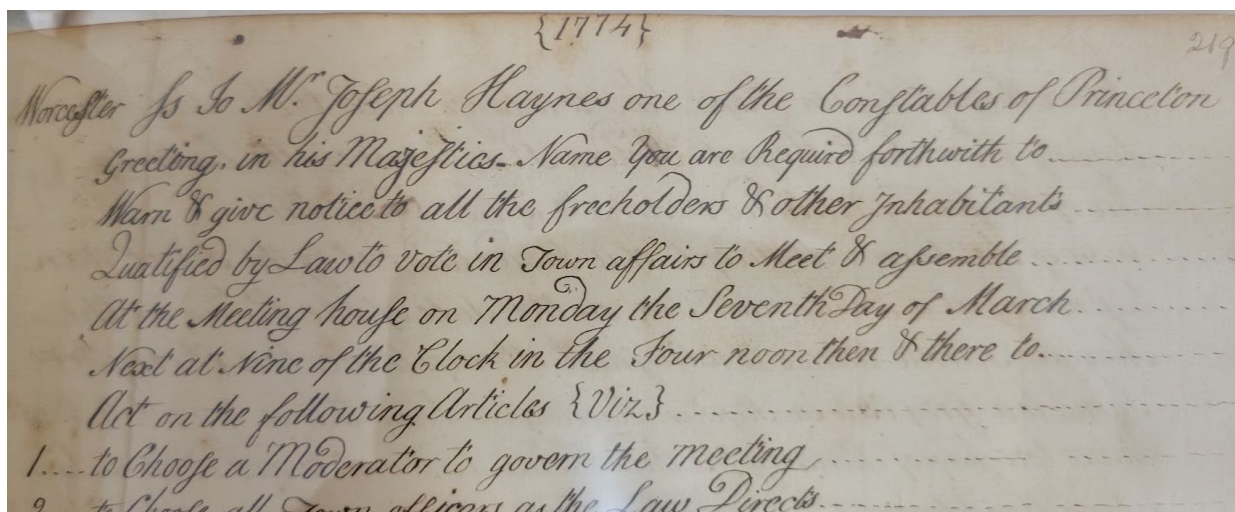 {1774}
219
Worcester Ss To Mr. Joseph Haynes one of the Constables of Princeton
Greeting. in his Majesties Name you are Required forthwith to
Warn & give notice to all the freeholders & other Inhabitants
Qualified by Law to vote in Town affairs to Meet & assemble
At the Meeting house on Monday the Seventh Day of March
Next at Nine of the Clock in the Four noon then & there to
Act on the following Articles {Viz}
1 to Choose a Moderator to govern the meeting
2 to Choose all Town officers as the Law Directs